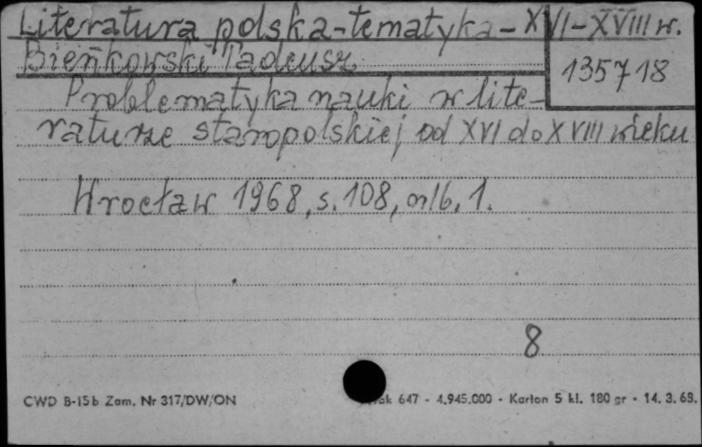 Literatura polska-tematyka-XVI-XVIII w.
Bieńkowski Tadeusz
135718
Problematyka nauki w lite-
raturze staropolskiej od XVI do XVIII wieku
Wrocław 1968, s. 108, nlb. 1.
8
CWD B-15b Zam. Nr 317/DW/ON
647 - 4.945.000 - Karton 5 kl. 180 gr - 14. 3. 68.